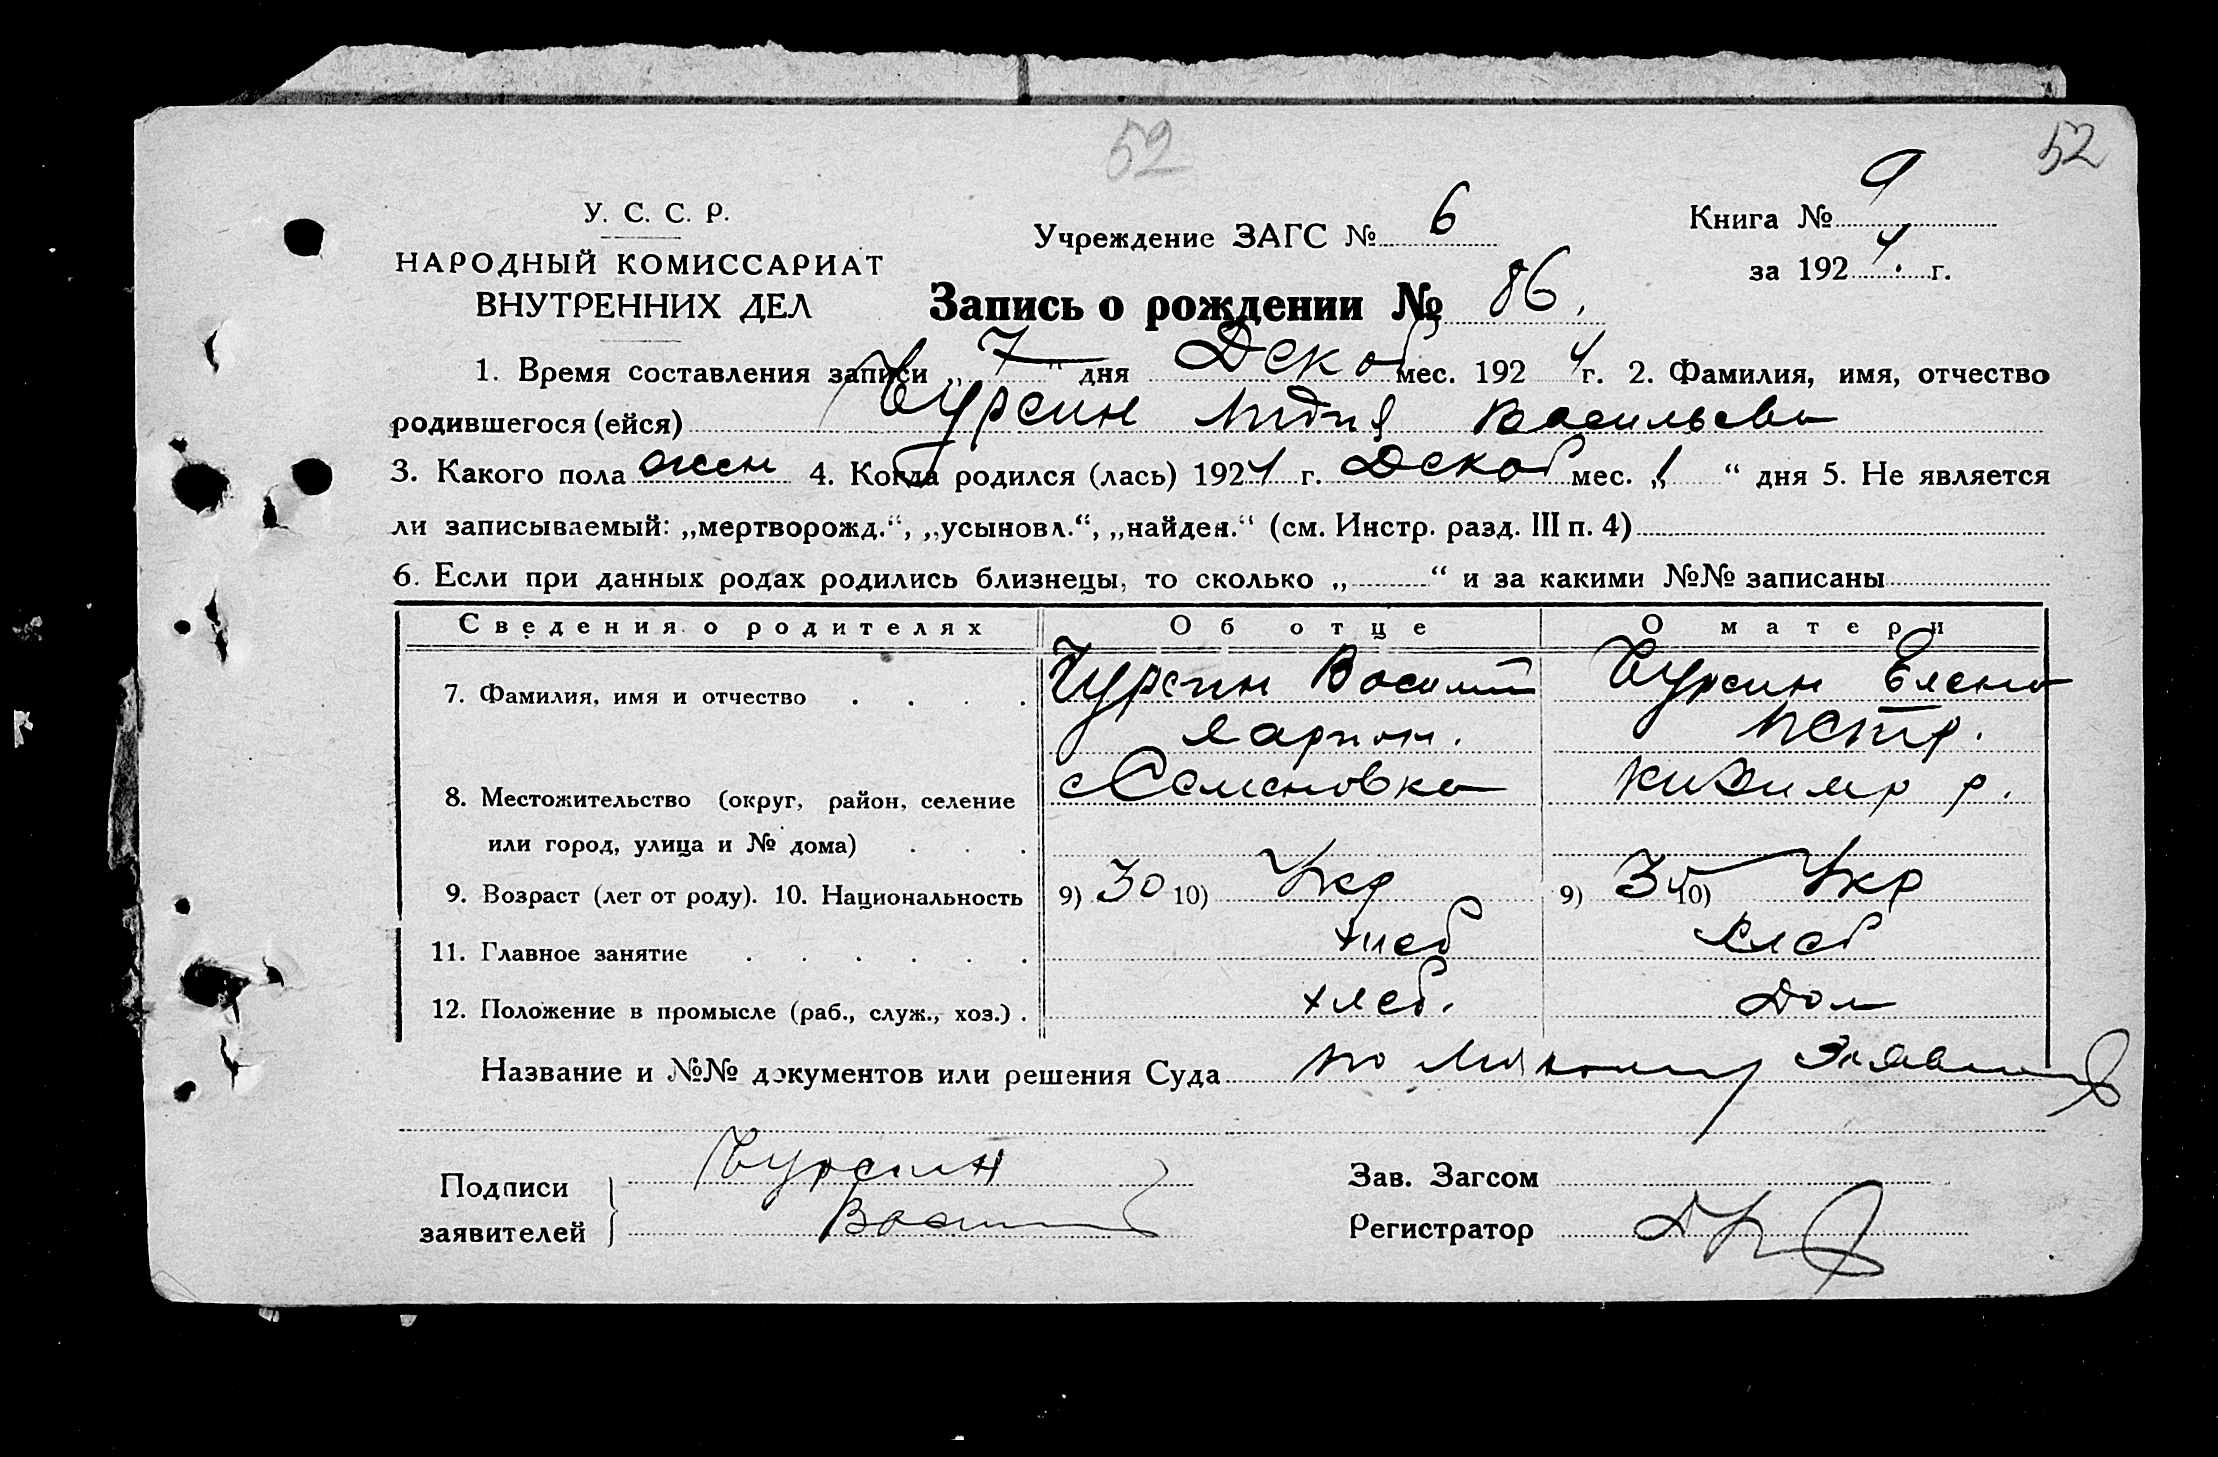 52
52
У. С. С. Р.
НАРОДНЫЙ КОМИССАРИАТ
ВНУТРЕННИХ ДЕЛ
Учреждение ЗАГС № 6
Книга № 9
за 1924 г.
Запись о рождении № 86.
1. Время составления записи „7“ дня Декаб мес. 1924 г. 2. Фамилия, имя, отчество
родившегося (ейся) Чурсин Лидия Васильевн
3. Какого пола жен 4. Когда родился (лась) 1924 г. Декаб мес. „1“ дня 5. Не является
ли записываемый: „мертворожд.“, „усыновл.“, „найден.“ (см. Инстр. разд. III п. 4)
6. Если при данных родах родились близнецы, то сколько „ “ и за какими №№ записаны
Сведения о родителях Об отце О матери
7. Фамилия, имя и отчество Чурсин Василий Чурсин Елена
Ларион. Петр.
8. Местожительство (округ, район, селение с Семеновка р.
или город, улица и № дома)
9. Возраст (лет от роду). 10. Национальность 9) 30 10) Укр 9) 35 10) Укр
11. Главное занятие хлеб хлеб
12. Положение в промысле (раб., служ., хоз.) хлеб. Дом
Название и №№ документов или решения Суда по личному
Подписи заявителей Чурсин
Васил
Зав. Загсом
Регистратор